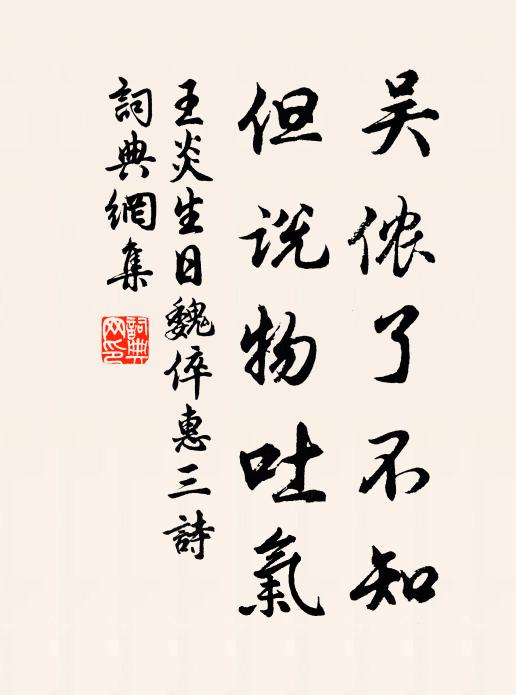 吴侬了不知
但说物吐氣
王炎生日魏倅惠三詩
詞典網集
詞典網印